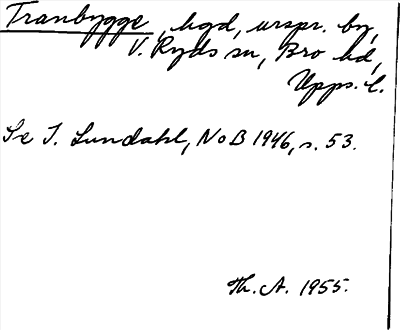 Tranbygge, hgd, urspr. by,
V. Ryds sn, Bro hd,
Upps. l.
Se I. Lundahl, NoB 1946, s. 53.
Th. A. 1955.